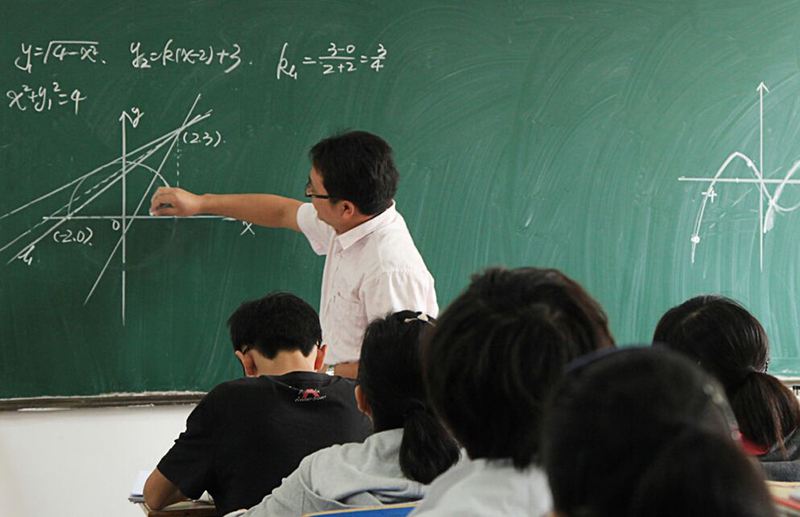 y₁=√4-x². y₂=k(x-2)+3. k₁=3-0/2+2=3/4
x²+y₁²=4
y
(2.3).
0
x
(-2.0).
l₁
-4